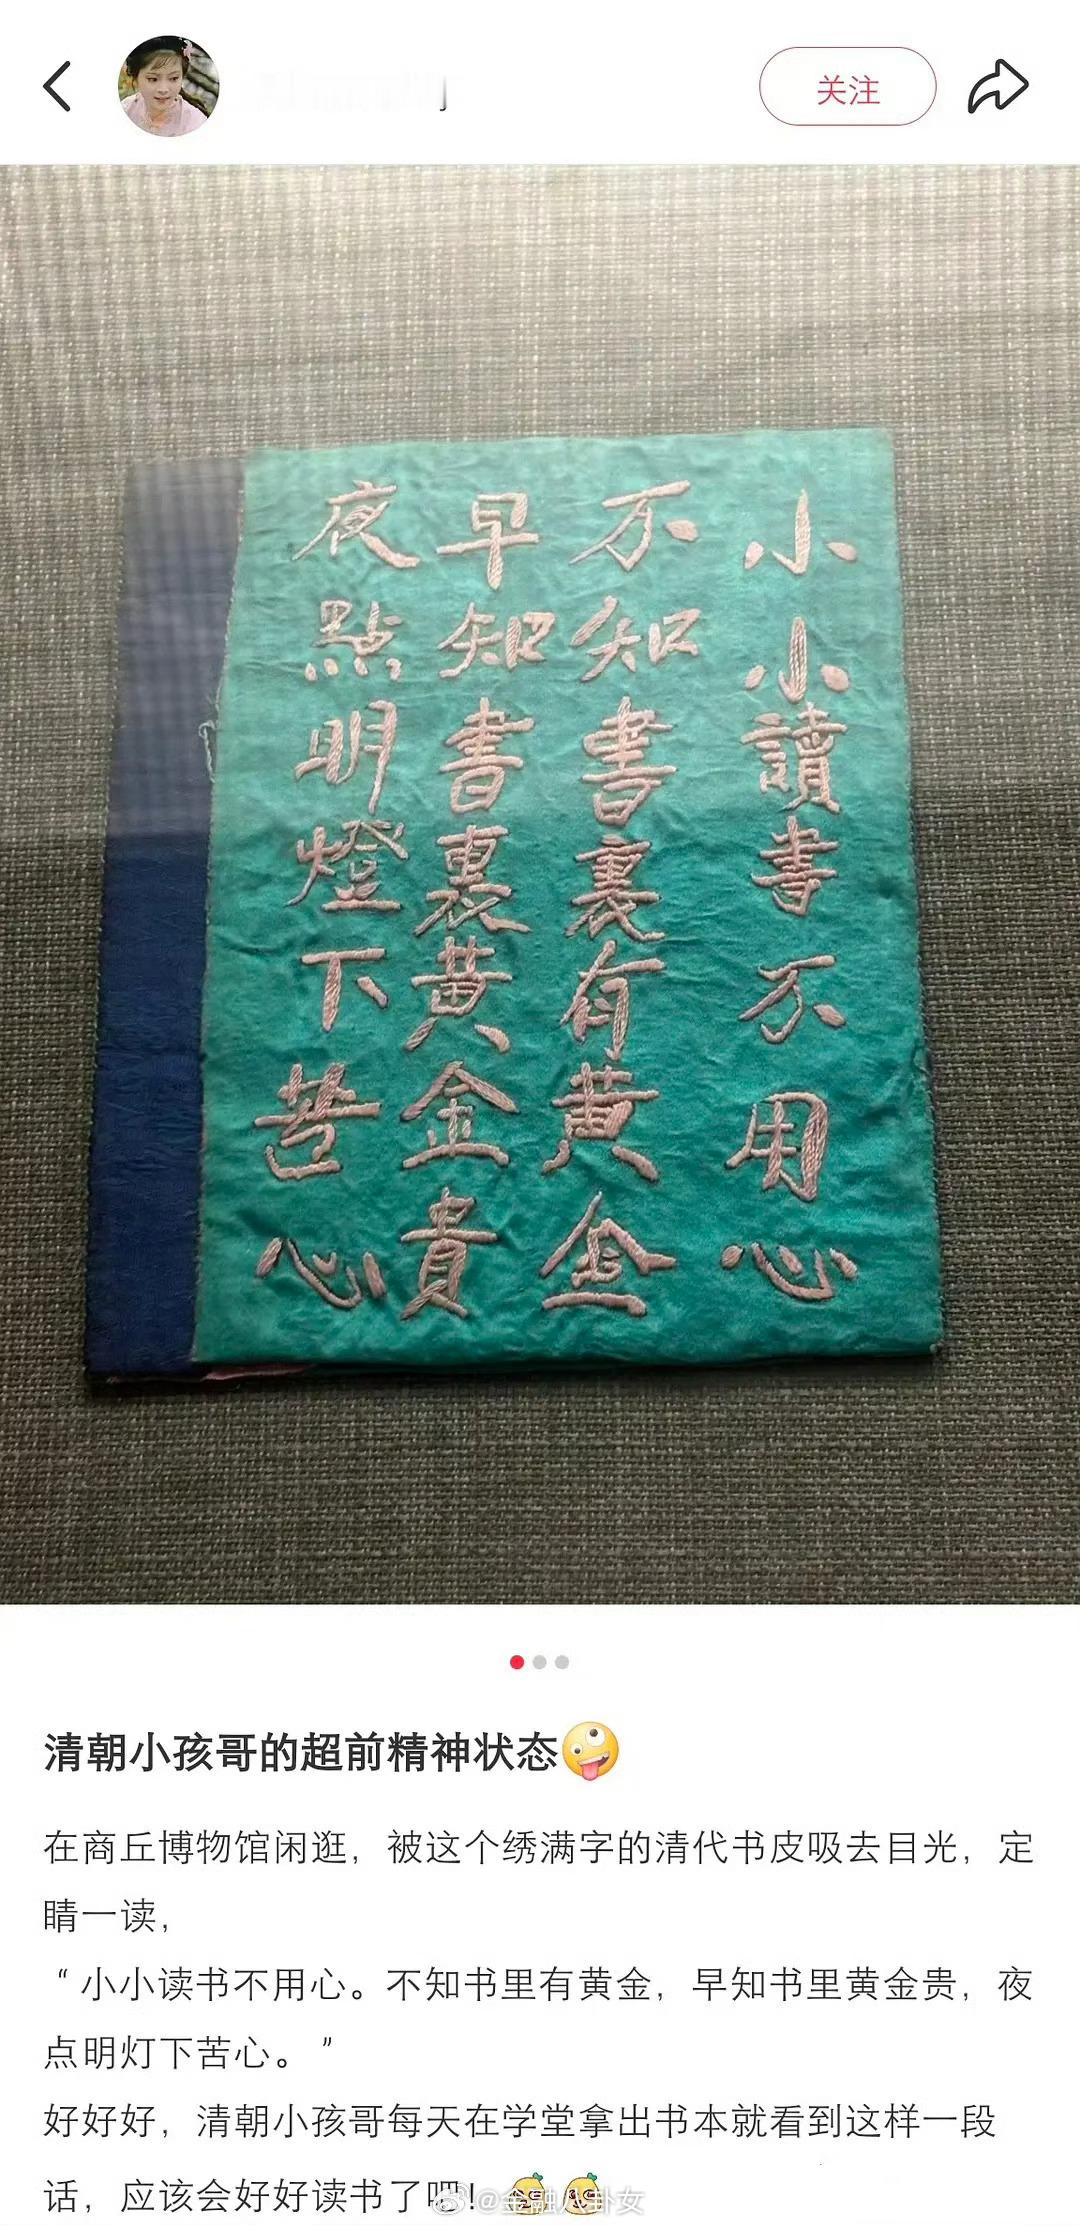 关注
小小讀書不用心
不知書裏有黄金
早知書裏黄金貴
夜點明燈下苦心
清朝小孩哥的超前精神状态🤪
在商丘博物馆闲逛，被这个绣满字的清代书皮吸去目光，定
睛一读，
“小小读书不用心。不知书里有黄金，早知书里黄金贵，夜
点明灯下苦心。”
好好好，清朝小孩哥每天在学堂拿出书本就看到这样一段
话，应该会好好读书了吧！
@金融八卦女